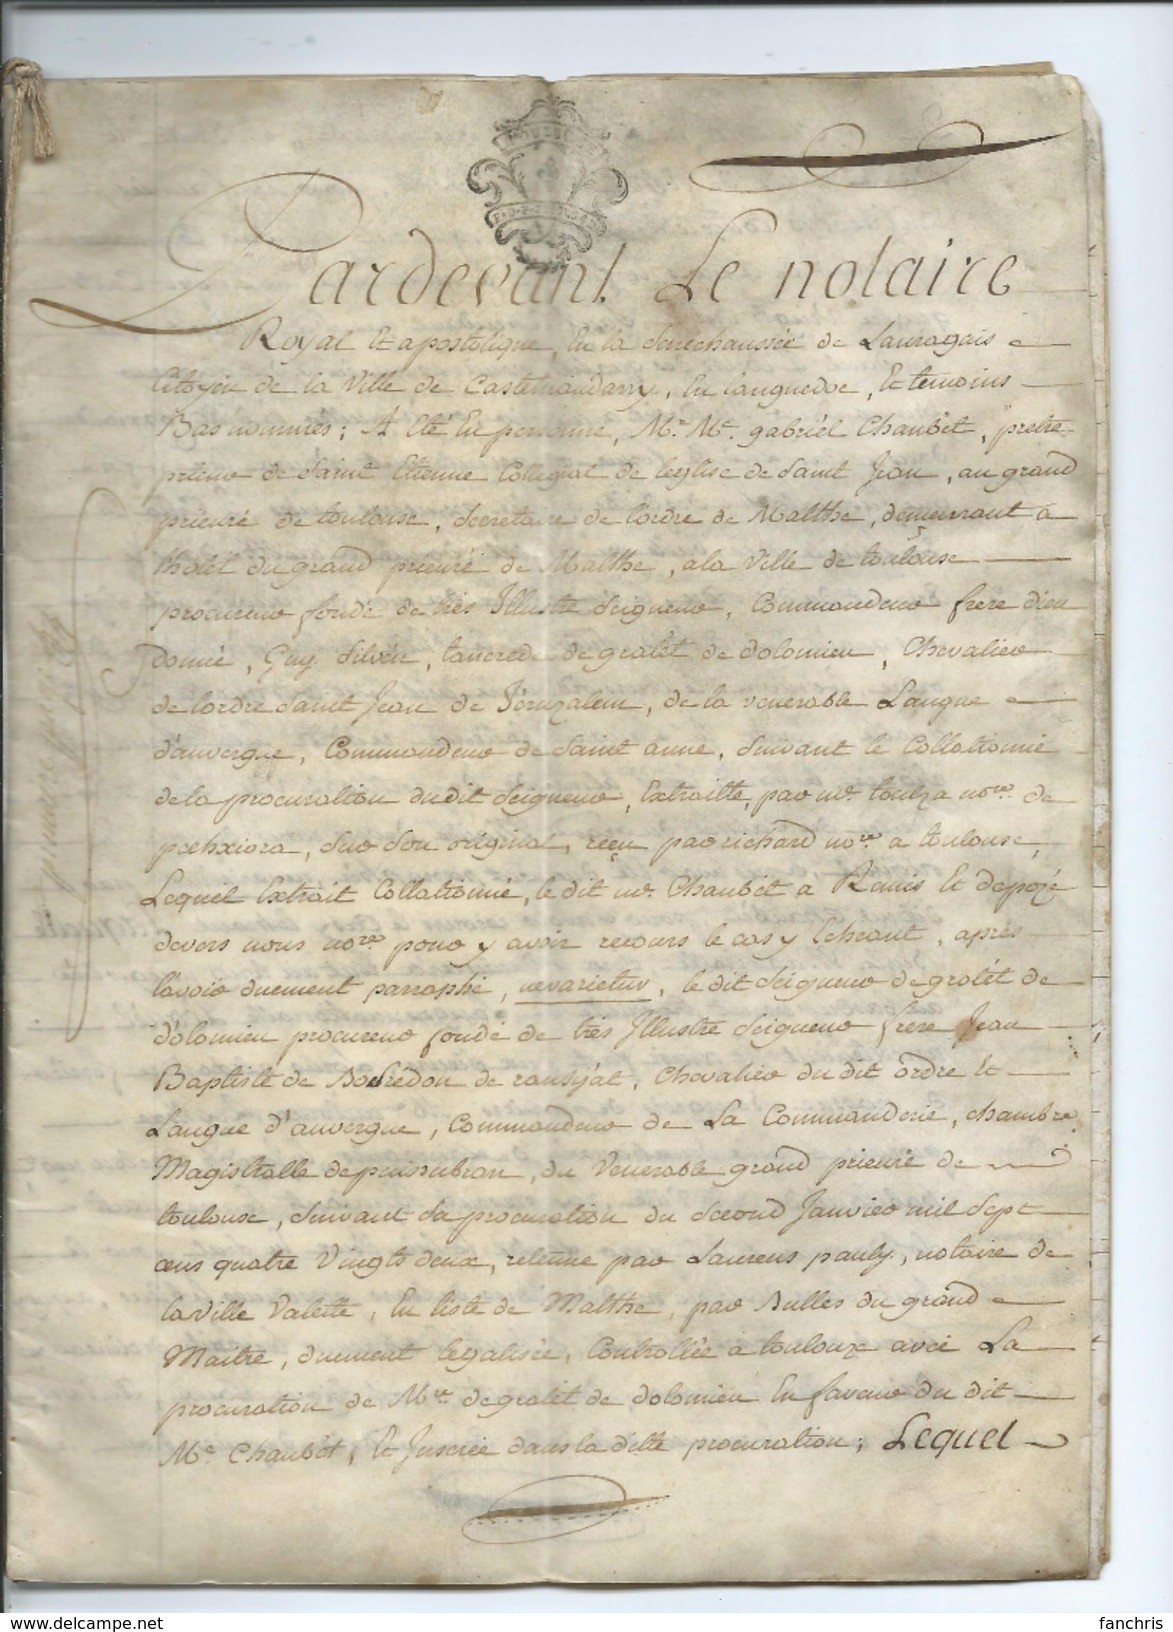 Pardevant Le notaire
Royal Et apostolique, En la Senechaussée de Lauragais
Citoyen de la Ville de Castelnaudarry, En Languedoc, Et temoins
Bas nommés; A Eté En personne, Mr. Me. gabriél Chaubèt, pretre
prieur de Saint Etienne Collegial de leglise de Saint Jean, au grand
prieuré de toulouse, Secretaire de l'ordre de Malthe, demeurant a
lhotél du grand prieuré de Malthe, a la Ville de toulouse
procureur fondé de trés Illustre Seigneur, Commandeur frere dieu
donné, Guy Silvén, tancrede de gralet de dolomieu, Chevalier
de lordre Saint Jean de Jéruzalem, de la venerable Langue
d'auvergne, Commandeur de Saint anne, Suivant le Collationné
de la procuration du dit Seigneur, Extraitte, par me. toulza nore. de
pexhiora, Sur Son original, reçu par richard nore a toulouse,
Lequel Extrait Collationné, le dit me. Chaubèt a Remis Et depozé
devers nous nore. pour y avoir recours le cas y Echeant, aprés
l'avoir duement parraphé, nevarietur, le dit Seigneur de grolèt de
dolomieu procureur fondé de trés Illustre Seigneur frere Jean
Baptiste de Bosrédon de ransijat, Chevalier du dit ordre Et
Langue d'auvergne, Commandeur de La Commanderie, chambre
Magistralle de puissubran, du Venerable grand prieuré de
toulouse, Suivant Sa procuration du Second Janvier mil Sept
cens quatre Vingts deux, retenue par Laurens pauly, notaire de
la Ville Valette, En liste de Malthe, par Bulles du grand
Maitre, duement legalisée, Controllée a toulouze avec La
procuration de Mre. de grolet de dolomieu En faveur du dit
Me. Chaubèt, Et Inserée dans la ditte procuration; Lequel
www.delcampe.net
fanchris